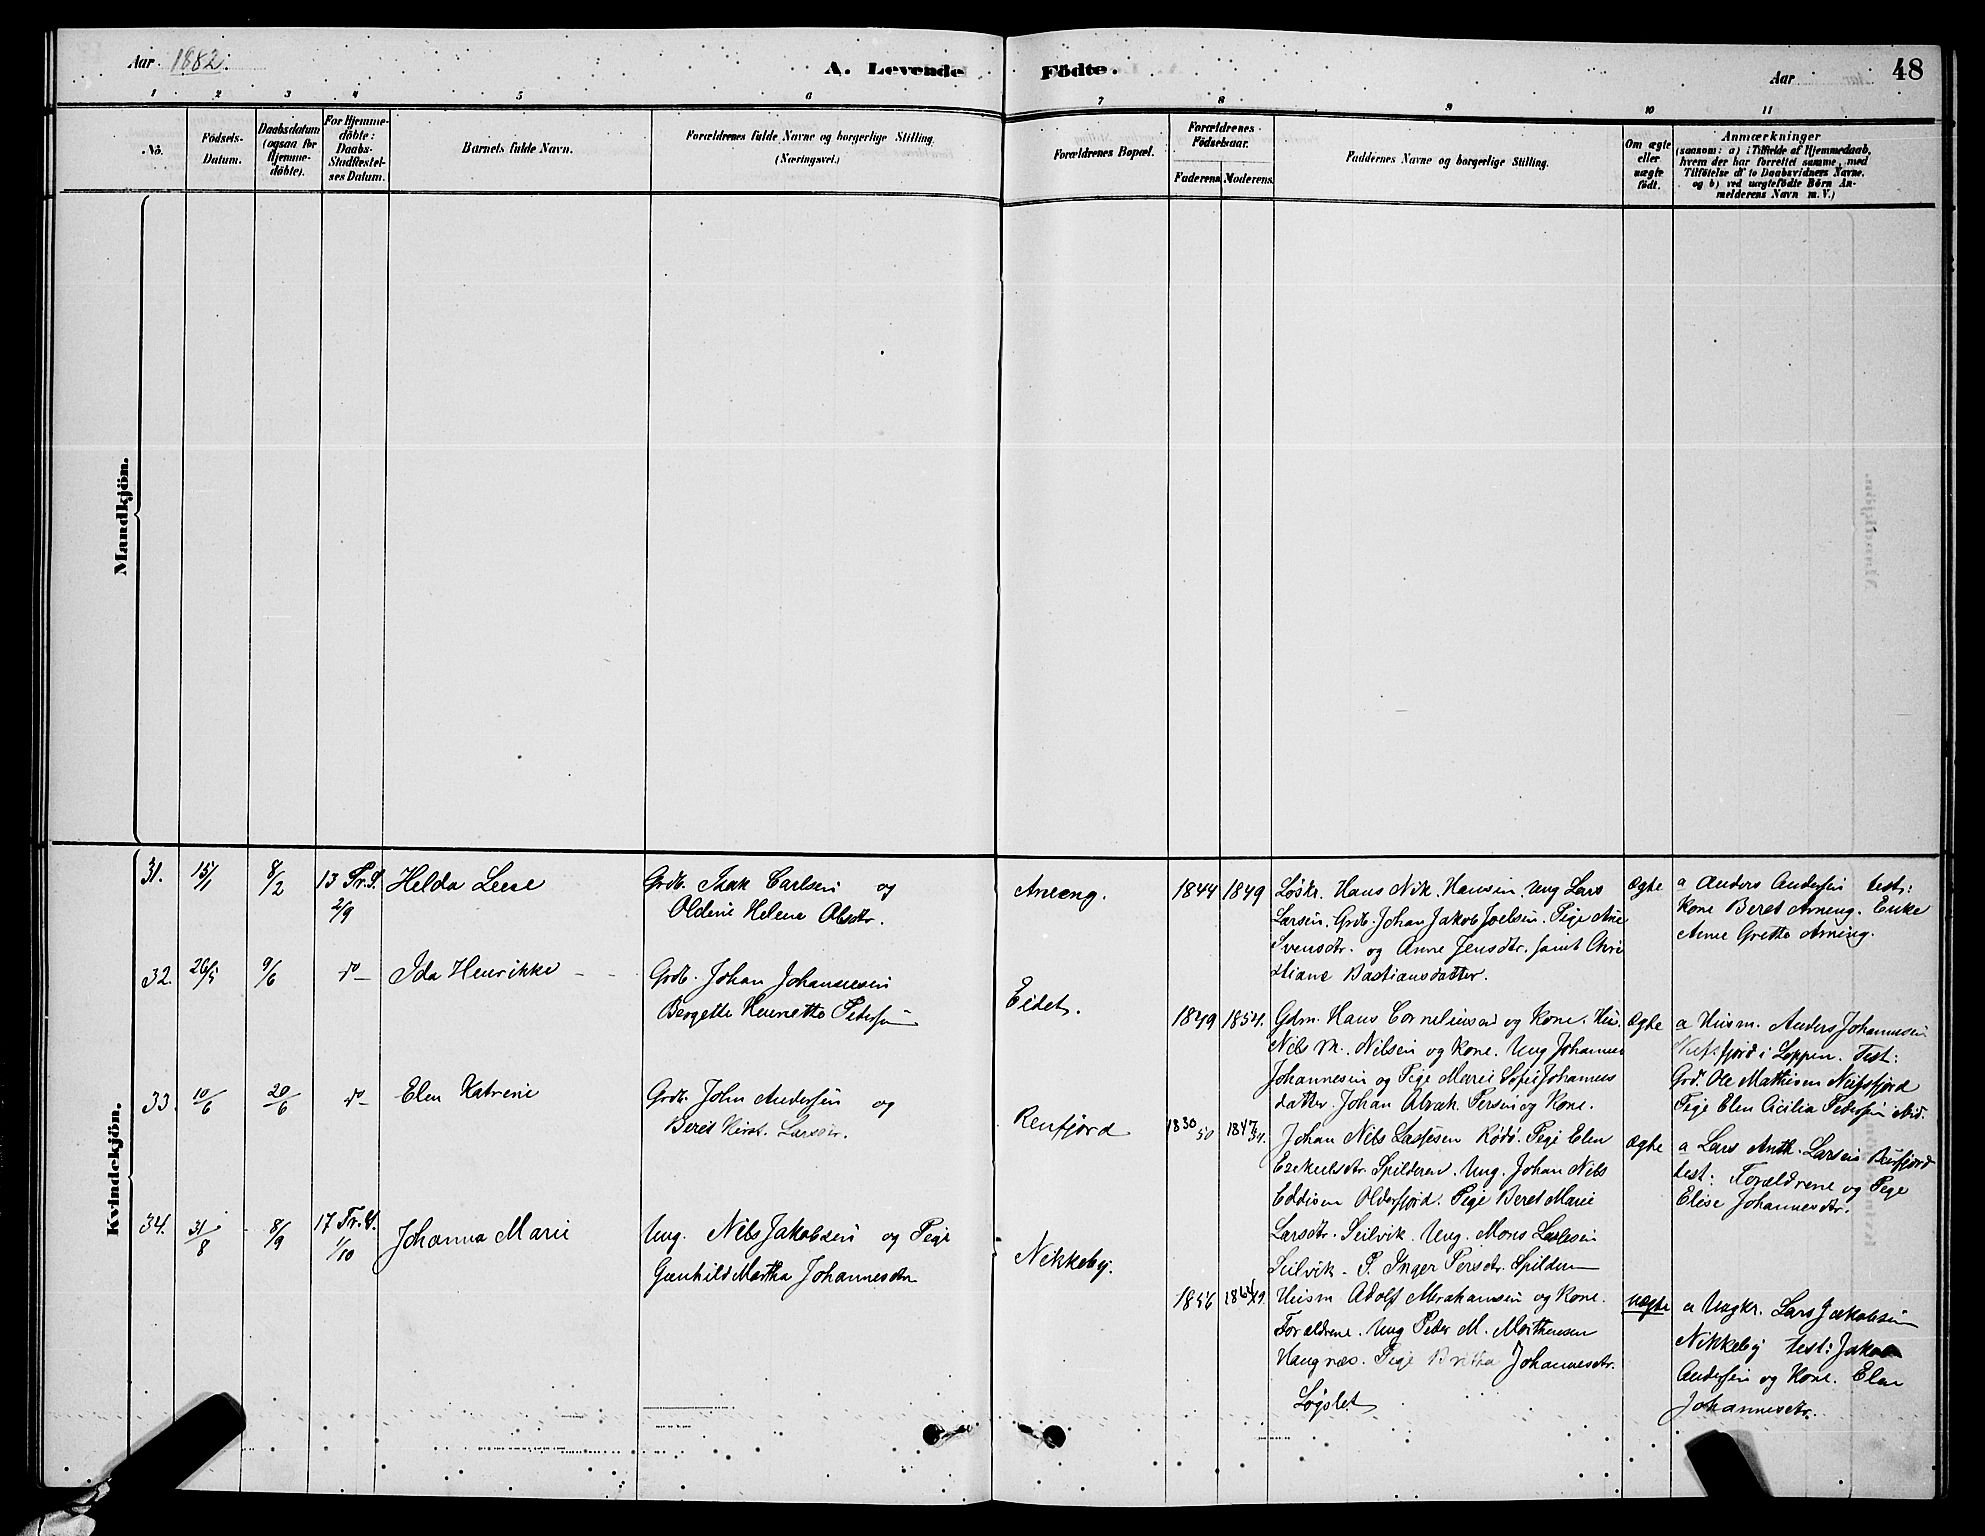 Aar 1882.
A. Levende Födte.
Aar
48
1 2 3 4 5 6 7 8 9 10 11
No.
Födsels-Datum.
Daabsdatum (ogsaa for Hjemme-döbte).
For Hjemme-döbte: Daabs-Stadfæstel-ses Datum.
Barnets fulde Navn.
Forældrenes fulde Navne og borgerlige Stilling
(Næringsvei.)
Forældrenes Bopæl.
Forældrenes Födselsaar.
Faderens
Moderens.
Faddernes Navne og borgerlige Stilling.
Om ægte eller uægte födt.
Anmærkninger
(saasom: a) i Tilfælde af Hjemmedaab,
hvem der har forrettet samme, med
Tilföielse af to Daabsvidners Navne,
og b) ved uægtefödte Börn An-
melderens Navn m. V.)
Mandkjön.
Kvindekjön.
31. 15/1 8/2 13 Tr.S. 2/9
Helda Lene
Grdb. Isak Carlsen og
Oldine Helene Olsdtr.
Arneng.
1844 1849
Løskr. Hans Nik. Hansen. Ung Lars
Larsen. Grdb. Johan Jakob Joelsen. Pige Ane
Svensdtr. og Anne Jensdtr. samt Chri
stiane Bastiansdatter.
Ægte
a Anders Andersen test:
Kone Beret Arneng. Enke
Anne Grethe Arneng.
32. 26/5 9/6 do
Ida Henrikke
Grdb. Johan Johannesen
Bergette Henriette Pedersen
Eidet.
1849 1854.
Gdm. Hans Cornelius og Kone. Hu.
Nils M. Nilsen og Kone. Ung Johannes
Johannesen og Pige Marie Sofie Johannes
datter. Johan Abrah. Persen og Kone.
Ægte
a Husm. Anders Johannesen
Nufsfjord i Loppen. Test:
Grd. Ole Mathisen Nufsfjord
Pige Elen Cicilia Pedersen ibid.
33. 10/6 20/6 do
Elen Katrine
Grdb. John Andersen og
Beret Kirst. Larsdtr.
Reinfjord
1830 50 1847 34.
Johan Nils Lassesen Rødø. Pige Elen
Ezekielsdtr. Spilderen. Ung. Johan Nils
Eddisen Olderfjord. Pige Beret Marie
Larsdtr. Seilvik. Ung. Mons Lassesen
Seilvik. P. Inger Persdtr. Spilderen
Ægte
a Lars Anth. Larsen Burfjord
test: Forældrene og Pige
Elise Johannesdtr.
34. 31/8 8/9 17 Tr.S. 1/10
Johanna Marie
Ung. Nils Jakobsen og Pige
Gunhild Martha Johannesdtr
Nikkeby.
1856
Husm Adolf Abrahamsen og Kone.
Forældrene. Ung Peder M. Morthensen
Haugnæs. Pige Britha Johannesdtr.
Løgslet
uægte
a Ungkr. Lars Jakobsen
Nikkeby test: Jakob
Andersen og Kone. Elen
Johannesdtr.